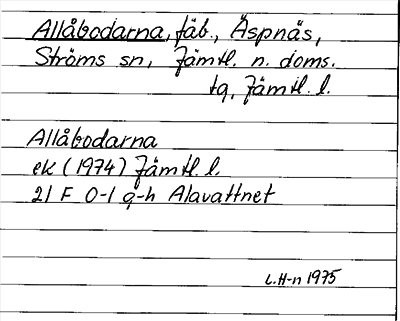 Allåbodarna, fäb., Äspnäs,
Ströms sn, Jämtl. n. doms.
tg, Jämtl. l.
Allåbodarna
ek (1974) Jämtl. l.
21 F 0-1 g-h Alavattnet
L.H-n 1975